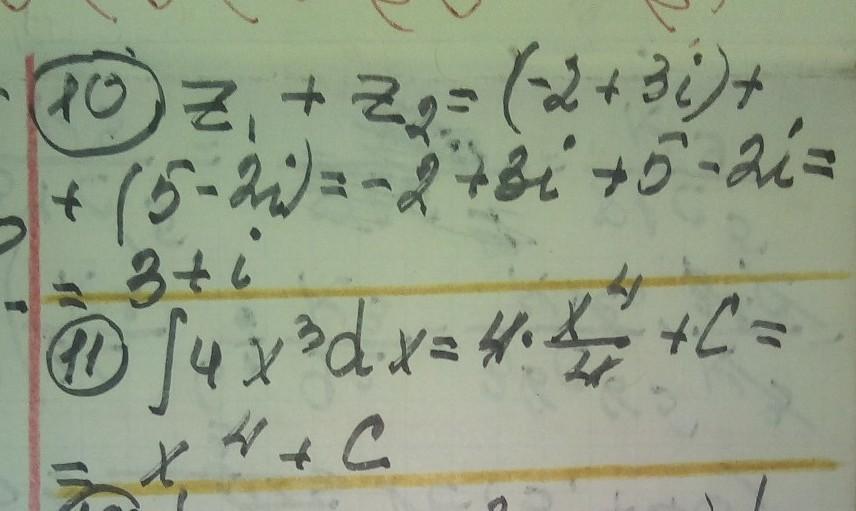 10 z₁ + z₂ = (-2 + 3i) +
+ (5 - 2i) = -2 + 3i + 5 - 2i =
= 3 + i
11 ∫4x³dx = 4 · x⁴/4 + C =
= x⁴ + C